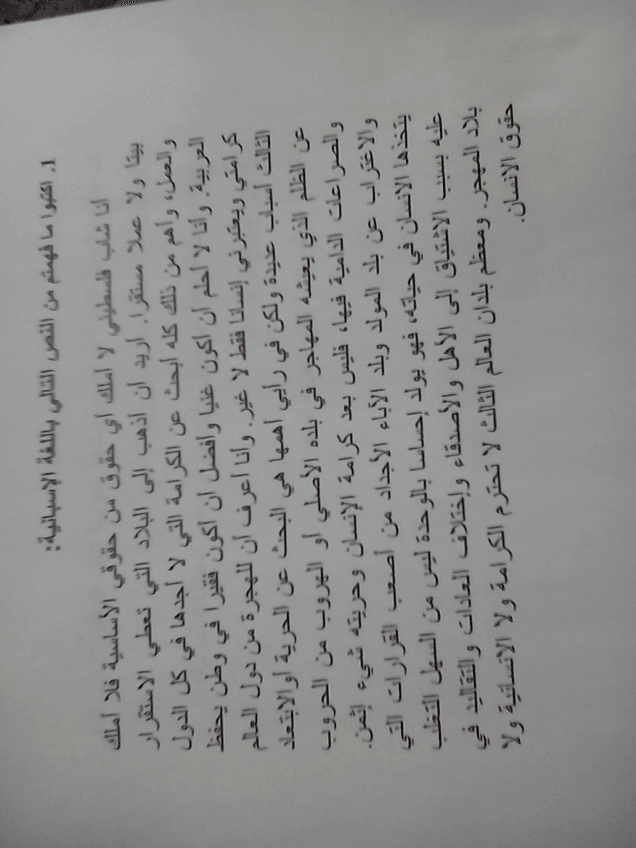 1. اكتبوا ما فهمتم من النص التالي باللغة الإسبانية:
انا شاب فلسطيني لا املك أي حقوق من حقوقي الأساسية فلا املك
بيتا ولا عملا مستقرا. اريد ان اذهب إلى البلاد التي تعطي الاستقرار
والعمل، وأهم من ذلك كله ابحث عن الكرامة التي لا أجدها في كل الدول
العربية. وانا لا أحلم أن أكون غنيا وافضل ان أكون فقيرا في وطن يحفظ
كرامتي ويعتبرني إنسانا فقط لا غير. وانا أعرف أن للهجرة من دول العالم
الثالث أسباب عديدة ولكن في رايي اهمها هي البحث عن الحرية أو الابتعاد
عن الظلم الذي يعيشه المهاجر في بلده الأصلي أو الهروب من الحروب
والصراعات الدامية فيها، فليس بعد كرامة الإنسان وحريته شيء إثمن.
والاغتراب عن بلد المولد وبلد الآباء الأجداد من أصعب القرارات التي
يتخذها الانسان في حياته، فهو يولد إحساسا بالوحدة ليس من السهل التغلب
عليه بسبب الاشتياق إلى الأهل والأصدقاء وإختلاف العادات والتقاليد في
بلاد المهجر. ومعظم بلدان العالم الثالث لا تحترم الكرامة ولا الانسانية ولا
حقوق الانسان.